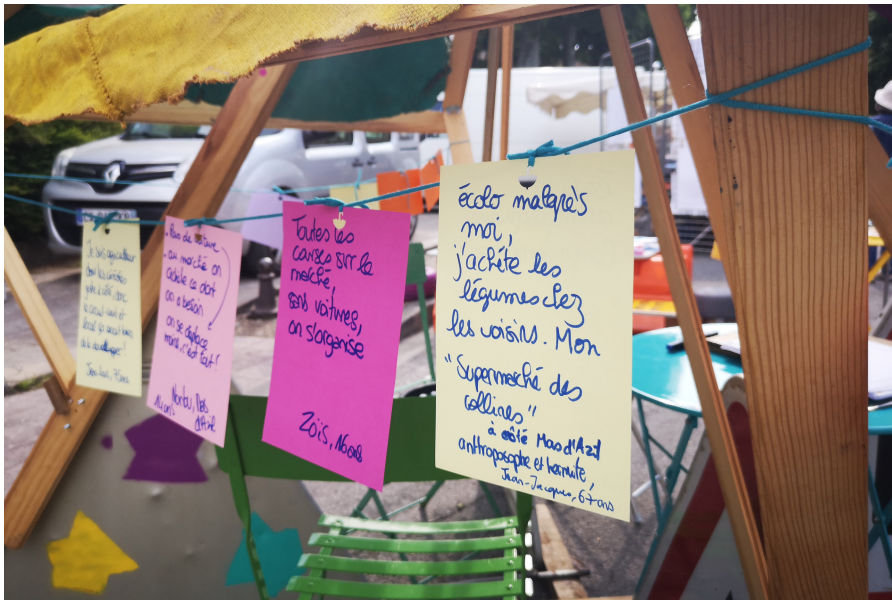 Je suis agriculteur
dans les
juste à côté, donc
le circuit court et
local
Jean-Louis, 75 ans
. Pas de voiture
. au marché on
achète ce dont
on a besoin
on se déplace
moins, c'est tout!
Mas
d'Azil
Toutes les
courses sur le
marché,
sans voitures,
on s'organise
Zoïs, 16 ans
écolo malgrès
moi,
j'achéte les
légumes chez
les voisins. Mon
"Supermarché des
collines"
à côté Mas d'Azil
anthroposophe et hermite,
Jean-Jacques, 67 ans